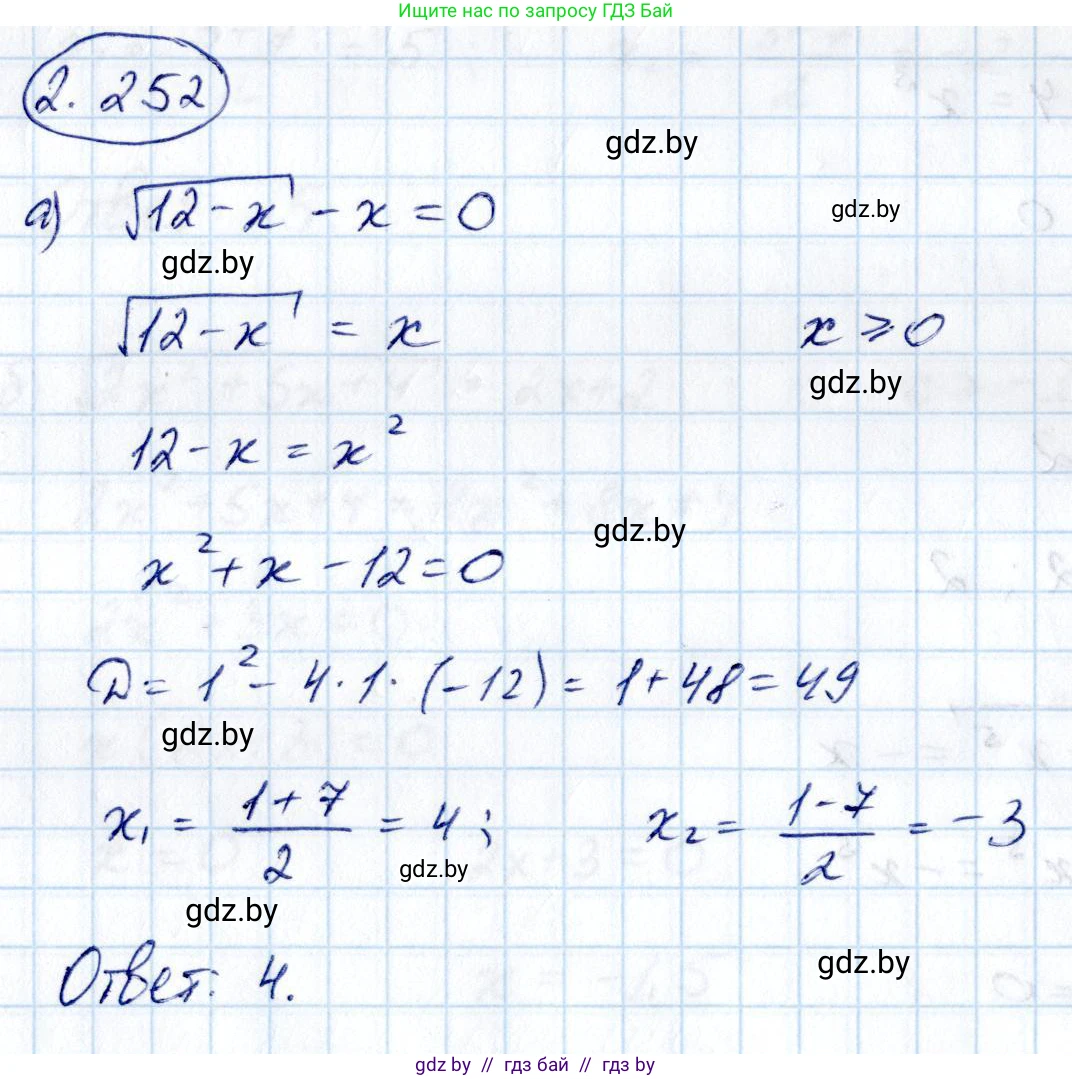 Ищите нас по запросу ГДЗ Бай
2. 252
gdz.by
а) √(12-x) - x = 0
gdz.by
gdz.by
√(12-x) = x x ⩾ 0
gdz.by
12 - x = x²
gdz.by
x² + x - 12 = 0
D = 1² - 4 · 1 · (-12) = 1 + 48 = 49
gdz.by
x₁ = (1+7)/2 = 4; x₂ = (1-7)/2 = -3
gdz.by
gdz.by
gdz.by
Ответ: 4.
gdz.by // гдз бай // гдз by